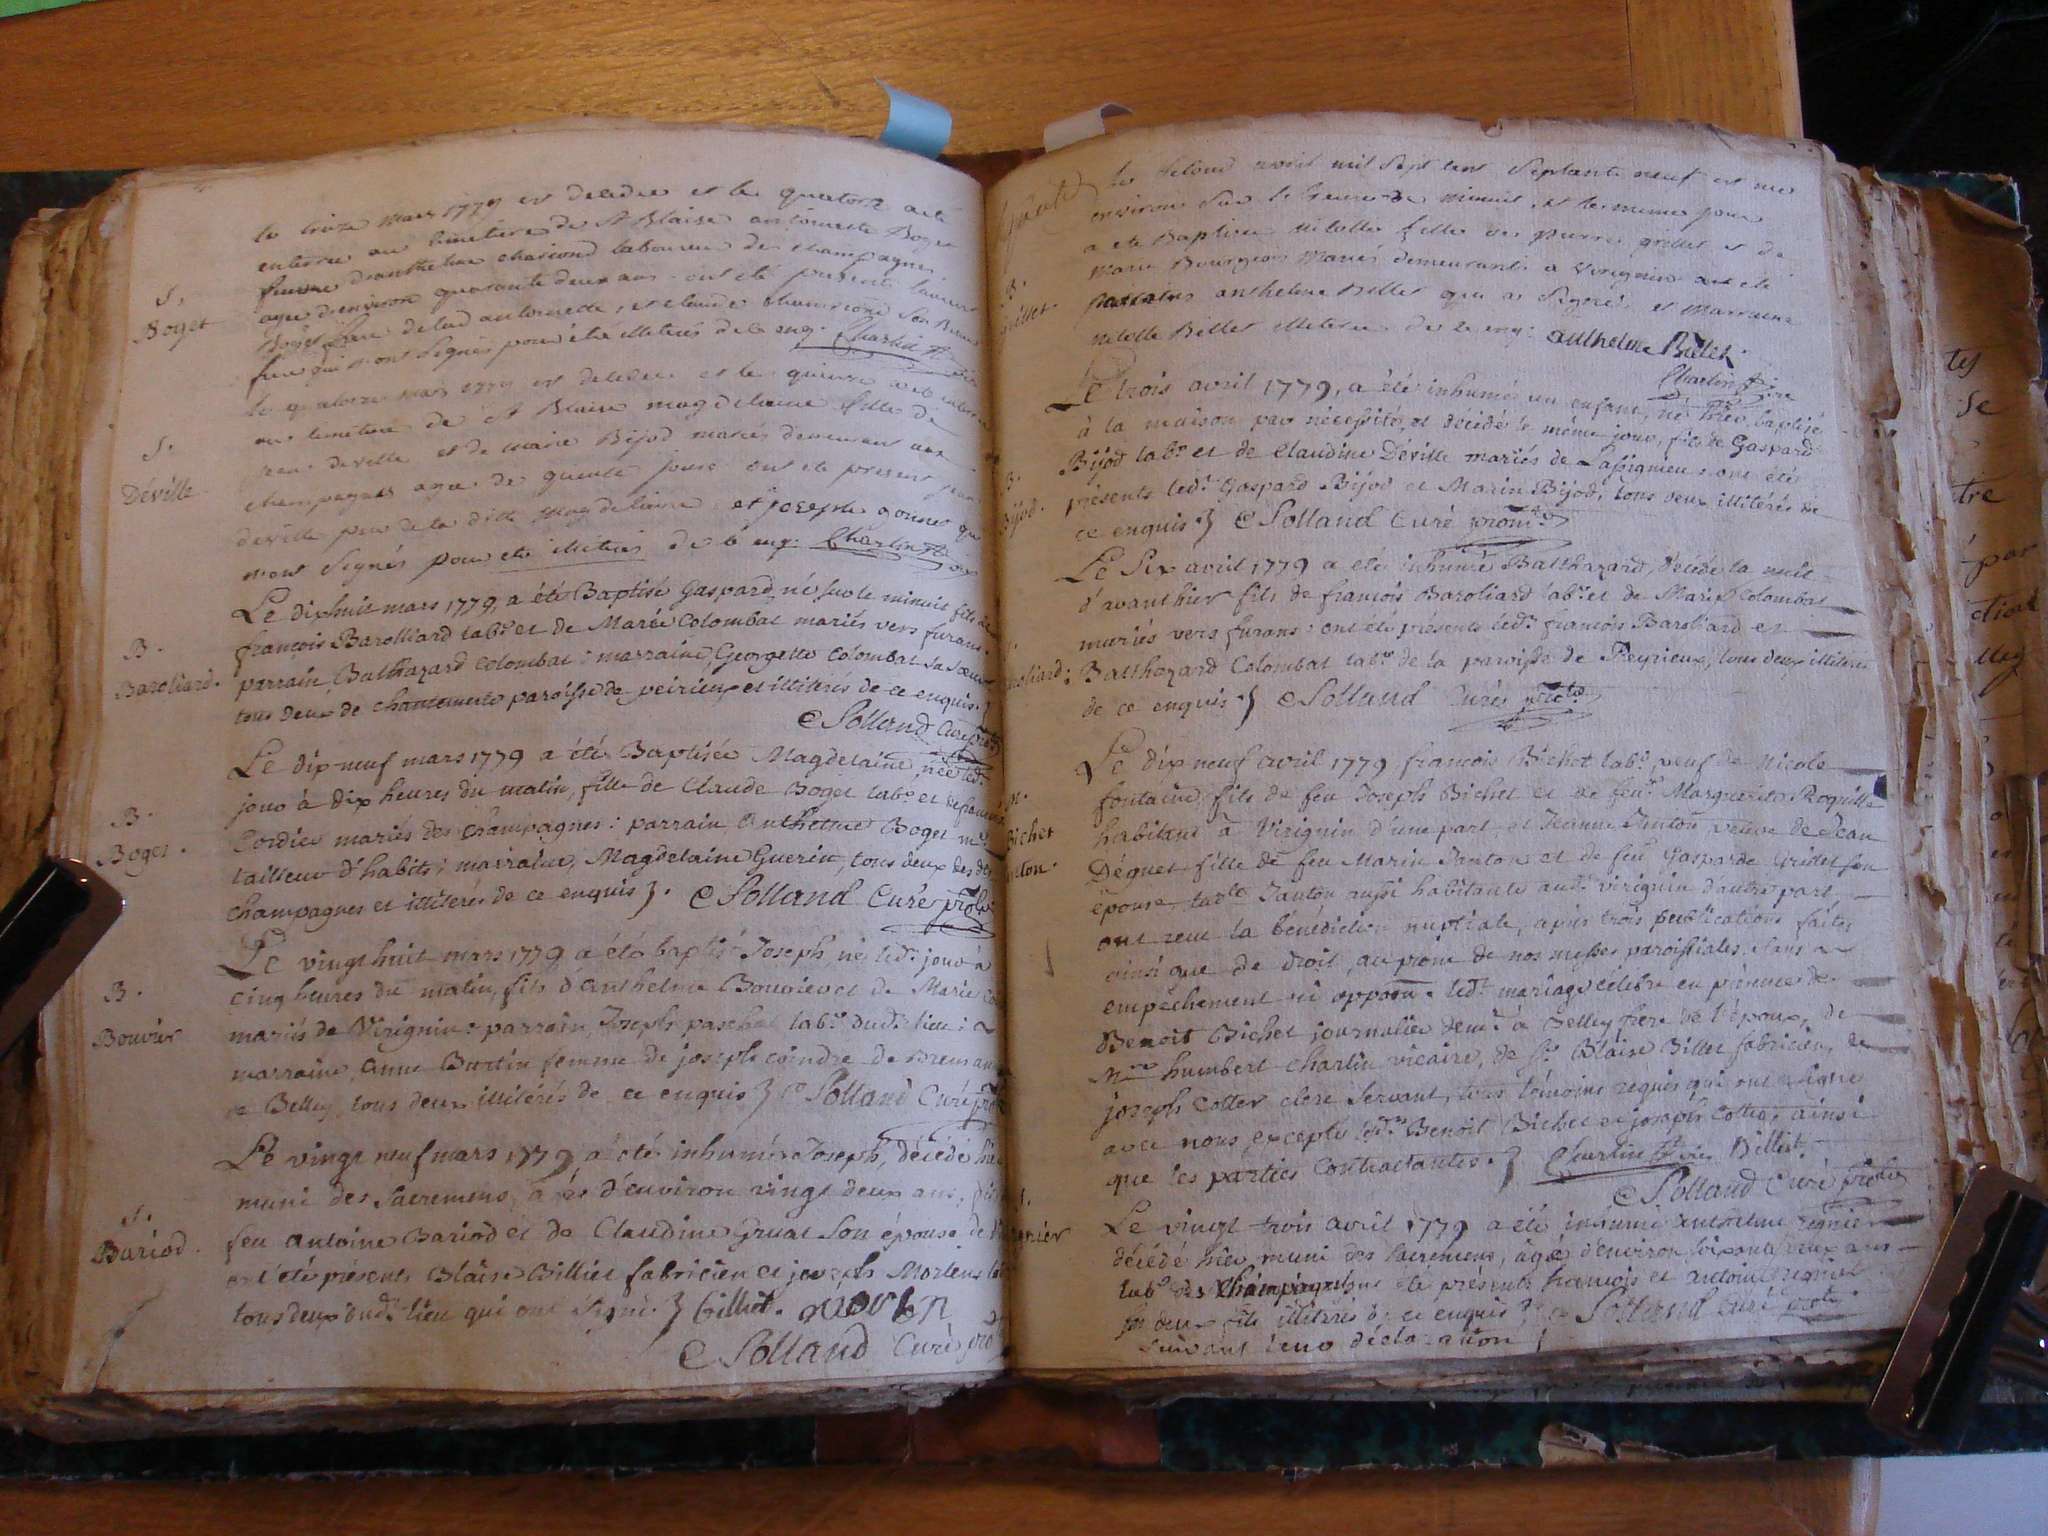 le treize mars 1779 est decedee et le quatorze a eté
enterree au cimetiere de St Blaise antoinette Boget
femme d'anthelme chariond laboureur des champagnes
agee d'environ quarante deux ans. ont eté presents laurent
Boget pere de lad antoinette, et claude son beau
frere qui n'ont signés pour être illiterés de ce enq. Charlin
S.
Boget
le quatorze mars 1779 est decedee et le quinze a eté enterree
au cimetiere de St Blaise magdelaine fille de
jean deville et de marie Bijod mariés demeurant aux
champagnes agee de quinze jours ont ete present jean
deville pere de la ditte magdelaine et joseph gonnet qui
n'ont signés pour etre illiterés de ce enq. Charlin
S.
Déville
Le dixhuit mars 1779, a été Baptisé Gaspard, né sur le minuit fils de
françois Barolliard labr. et de Marie Colombat mariés vers furans.
parrain, Balthazard Colombat : marraine, Georgette Colombat sa sœur
tous deux de chantemerle paroisse de peirieux et illiterés de ce enquis.
Solland Curé
B.
Baroliard.
Le dix neuf mars 1779 a été Baptisée Magdelaine, née led.
jour à dix heures du matin, fille de Claude Boget labr. et de
Cordier mariés des Champagnes : parrain anthelme Boget mr.
tailleur d'habits; marraine, Magdelaine Guerin, tous deux des d.
Champagnes et illiterés de ce enquis. Solland Curé
B.
Boget.
Le vingt huit mars 1779 a été baptisé Joseph, né led. jour à
cinq heures du matin, fils d'anthelme Bouvier et de Marie
mariés de Virignin : parrain, Joseph paschal labr. dud. lieu :
marraine, anne Burtin femme de joseph coindre de
de Belley tous deux illiterés de ce enquis Solland Curé
B.
Bouvier
Le vingt neuf mars 1779, a été inhumé Joseph, décédé hier
muni des sacremens, agé d'environ vingt deux ans,
feu antoine Bariod et de Claudine Gruat son épouse de
ont été présents Blaise Billiet fabricien et joseph
tous deux dud. lieu qui ont signé. Billiet.
Solland Curé
S.
Bariod.
Le second avril mil sept cent septante neuf est nee
environ sur le heure de minuit, et les meme jour
a ete Baptisee nicolle fille de pierre grillet et de
Marie Bourgeois Mariés demeurants a virignin ont ete
parrains anthelme Billet qui a signé, et marraine
nicolle Billet illiteree de ce enq: anthelme Billet.
Charlin
B.
Grillet
Le trois avril 1779, a été inhumé un enfant, né hier baptisé
à la maison par nécessité, et décédé le même jour, fils de Gaspard
Bijod labr. et de Claudine Déville mariés de Lassignieu : ont été
présents led. Gaspard Bijod et Marin Bijod, tous deux illiterés de
ce enquis. Solland Curé
B.
Bijod.
Le six avril 1779 a été inhumé Balthazard, décédé la nuit
d'avant hier fils de françois Baroliard labr. et de Marie Colombat
mariés vers furans : ont été présents led. françois Baroliard et
Balthazard Colombat labr. de la paroisse de Peyrieux, tous deux illiterés
de ce enquis. Solland Curé
Baroliard:
Le dix neuf avril 1779, françois Bichet labr. veuf de Nicole
fontaine, fils de feu Joseph Bichet et de feue Marguerite Roquille
habitant à Virignin d'une part, et Jeanne Janton, veuve de Jean
Déguet fille de feu Marin Janton et de feue Gasparde Gridet son
épouse, lad. Janton aussi habitante aud. virignin d'autre part
ont reçu la bénédiction nuptiale, après trois publications faites
ainsi que de droit, au prône de nos messes paroissiales sans
empêchement ni opposon. led. mariage célébré en présence de
Benoit Bichet journalier demt. à Belley frère de l'époux, de
Mre humbert Charlin vicaire, de Sr Blaise Billet fabricien, de
joseph Cotter clerc servant, tous témoins requis qui ont signé
avec nous excepté led. Benoit Bichet et joseph Cotter, ainsi
que les parties contractantes. Charlin Billiet.
Solland Curé
Bichet
Janton.
Le vingt trois avril 1779 a été inhumé anthelme
décédé hier muni des sacremens, agé d'environ soixante deux ans
labr. des Champagnes ont été présents françois et antoine
ses deux fils illiterés de ce enquis Solland Curé
suivant leur déclaration
S.